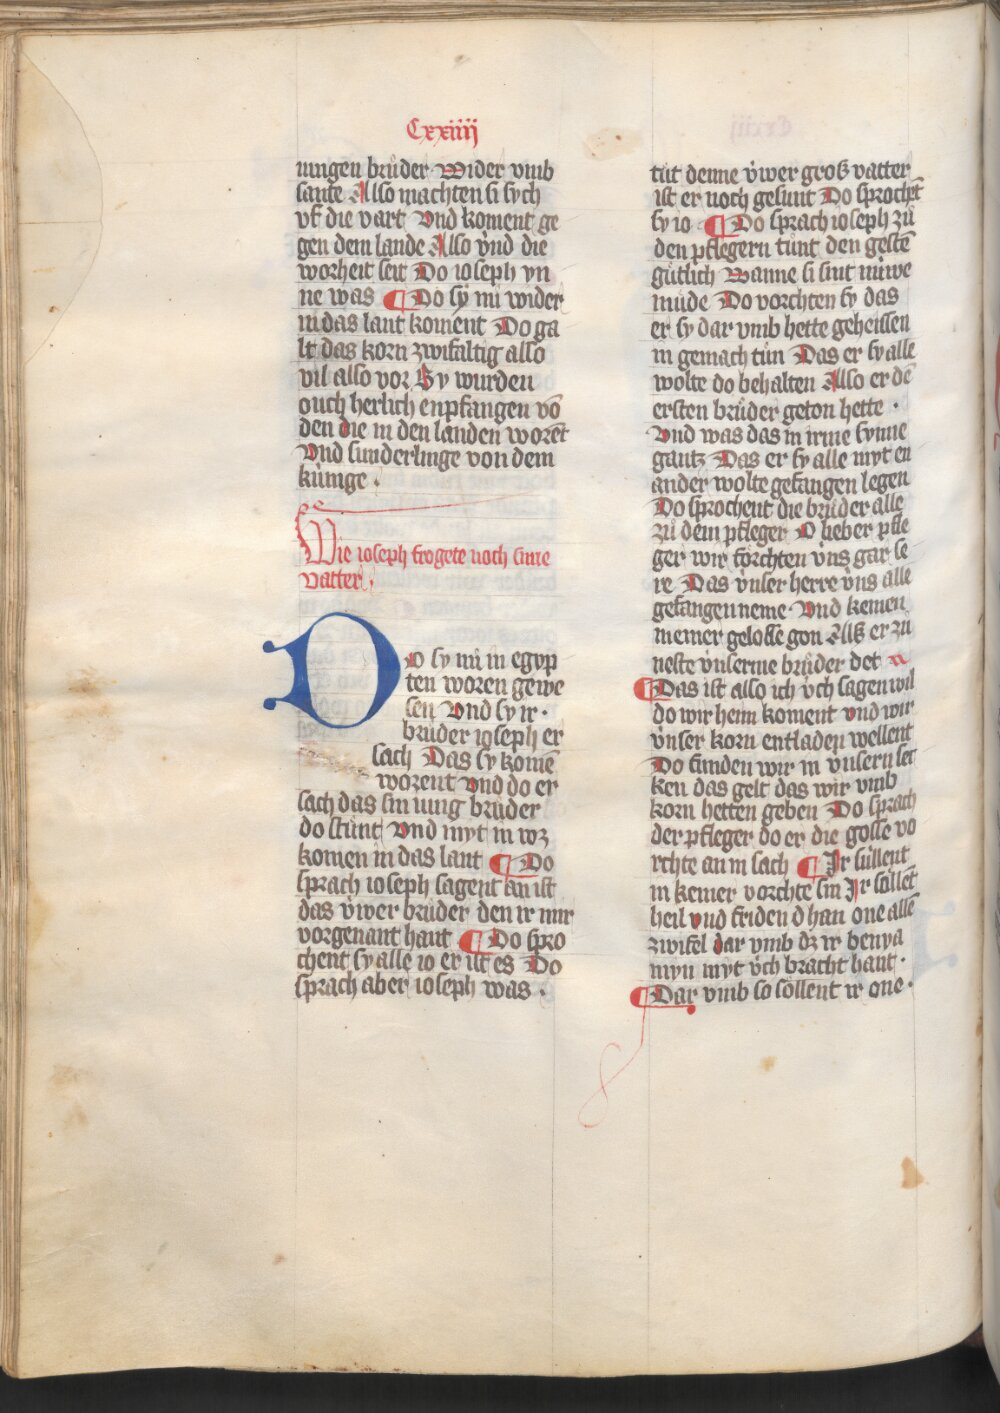 Cxxiiij
iungen bruͦder Wider vmb
sante Also machten si sych
vf die vart Vnd koment ge
gen dem lande Also vnd die
worheit seit Do ioseph yn
ne was ¶ Do sy nu wider
in das lant koment Do ga
lt das korn zwifaltig also
vil also vor Sy wurden
ouch herlich enpfangen vō
den die in den landen worēt
Vnd sunderlinge von dem
künige ·
Wie ioseph frogete noch sinre
vatter ·
Do sy nu in egyp
ten woren gewe
sen Vnd sy ir ·
bruder ioseph er
sach Das sy komē
worent Vnd do er
sach das sin iung bruder
do stuͦnt Vnd myt in wz
komen in das lant ¶ Do
sprach ioseph sagent an ist
das v́wer bruder den ir mir
vorgenant hant ¶ Do spro
chent sy alle io er ist es Do
sprach aber ioseph was ·
tuͦt denne v́wer groß vatter
ist er noch gesunt Do sprochēt
sy io ¶ Do sprach ioseph zuͦ
den pflegern tuͦnt den gestē
guͤtlich Wanne si sint müwe
müde Do vorchten sy das
er sy dar vmb hette geheissen
in gemach tuͦn Das er sy alle
wolte do behalten Also er dē
ersten bruͦder geton hette ·
Vnd was das in irme synne
gantz Das er sy alle myt en
ander wolte gefangen legen
Do sprochent die bruͦder alle
zuͦ dem pfleger O lieber pfle
ger wir förchten v́ns gar se
re Das vnser herre v́ns alle
gefangen neme Vnd keinen
me gelosse gon Alß er zuͦ
neste v́nserme bruͦder det
¶ Das ist also ich v́ch sagen wil
do wir heim koment vnd wir
v́nser korn entladen wellent
Do funden wir in vnsern sec
ken das gelt das wir vmb
korn hetten geben Do sprach
der pfleger do er die gosse vo
rchte an in sach ¶ Ir süllent
in keiner vorchte sin Ir söllēt
heil vnd friden han one allē
zwifel dar vmb dz ir benya
myn myt v́ch bracht hant ·
¶ Dar vmb so söllent ir one ·